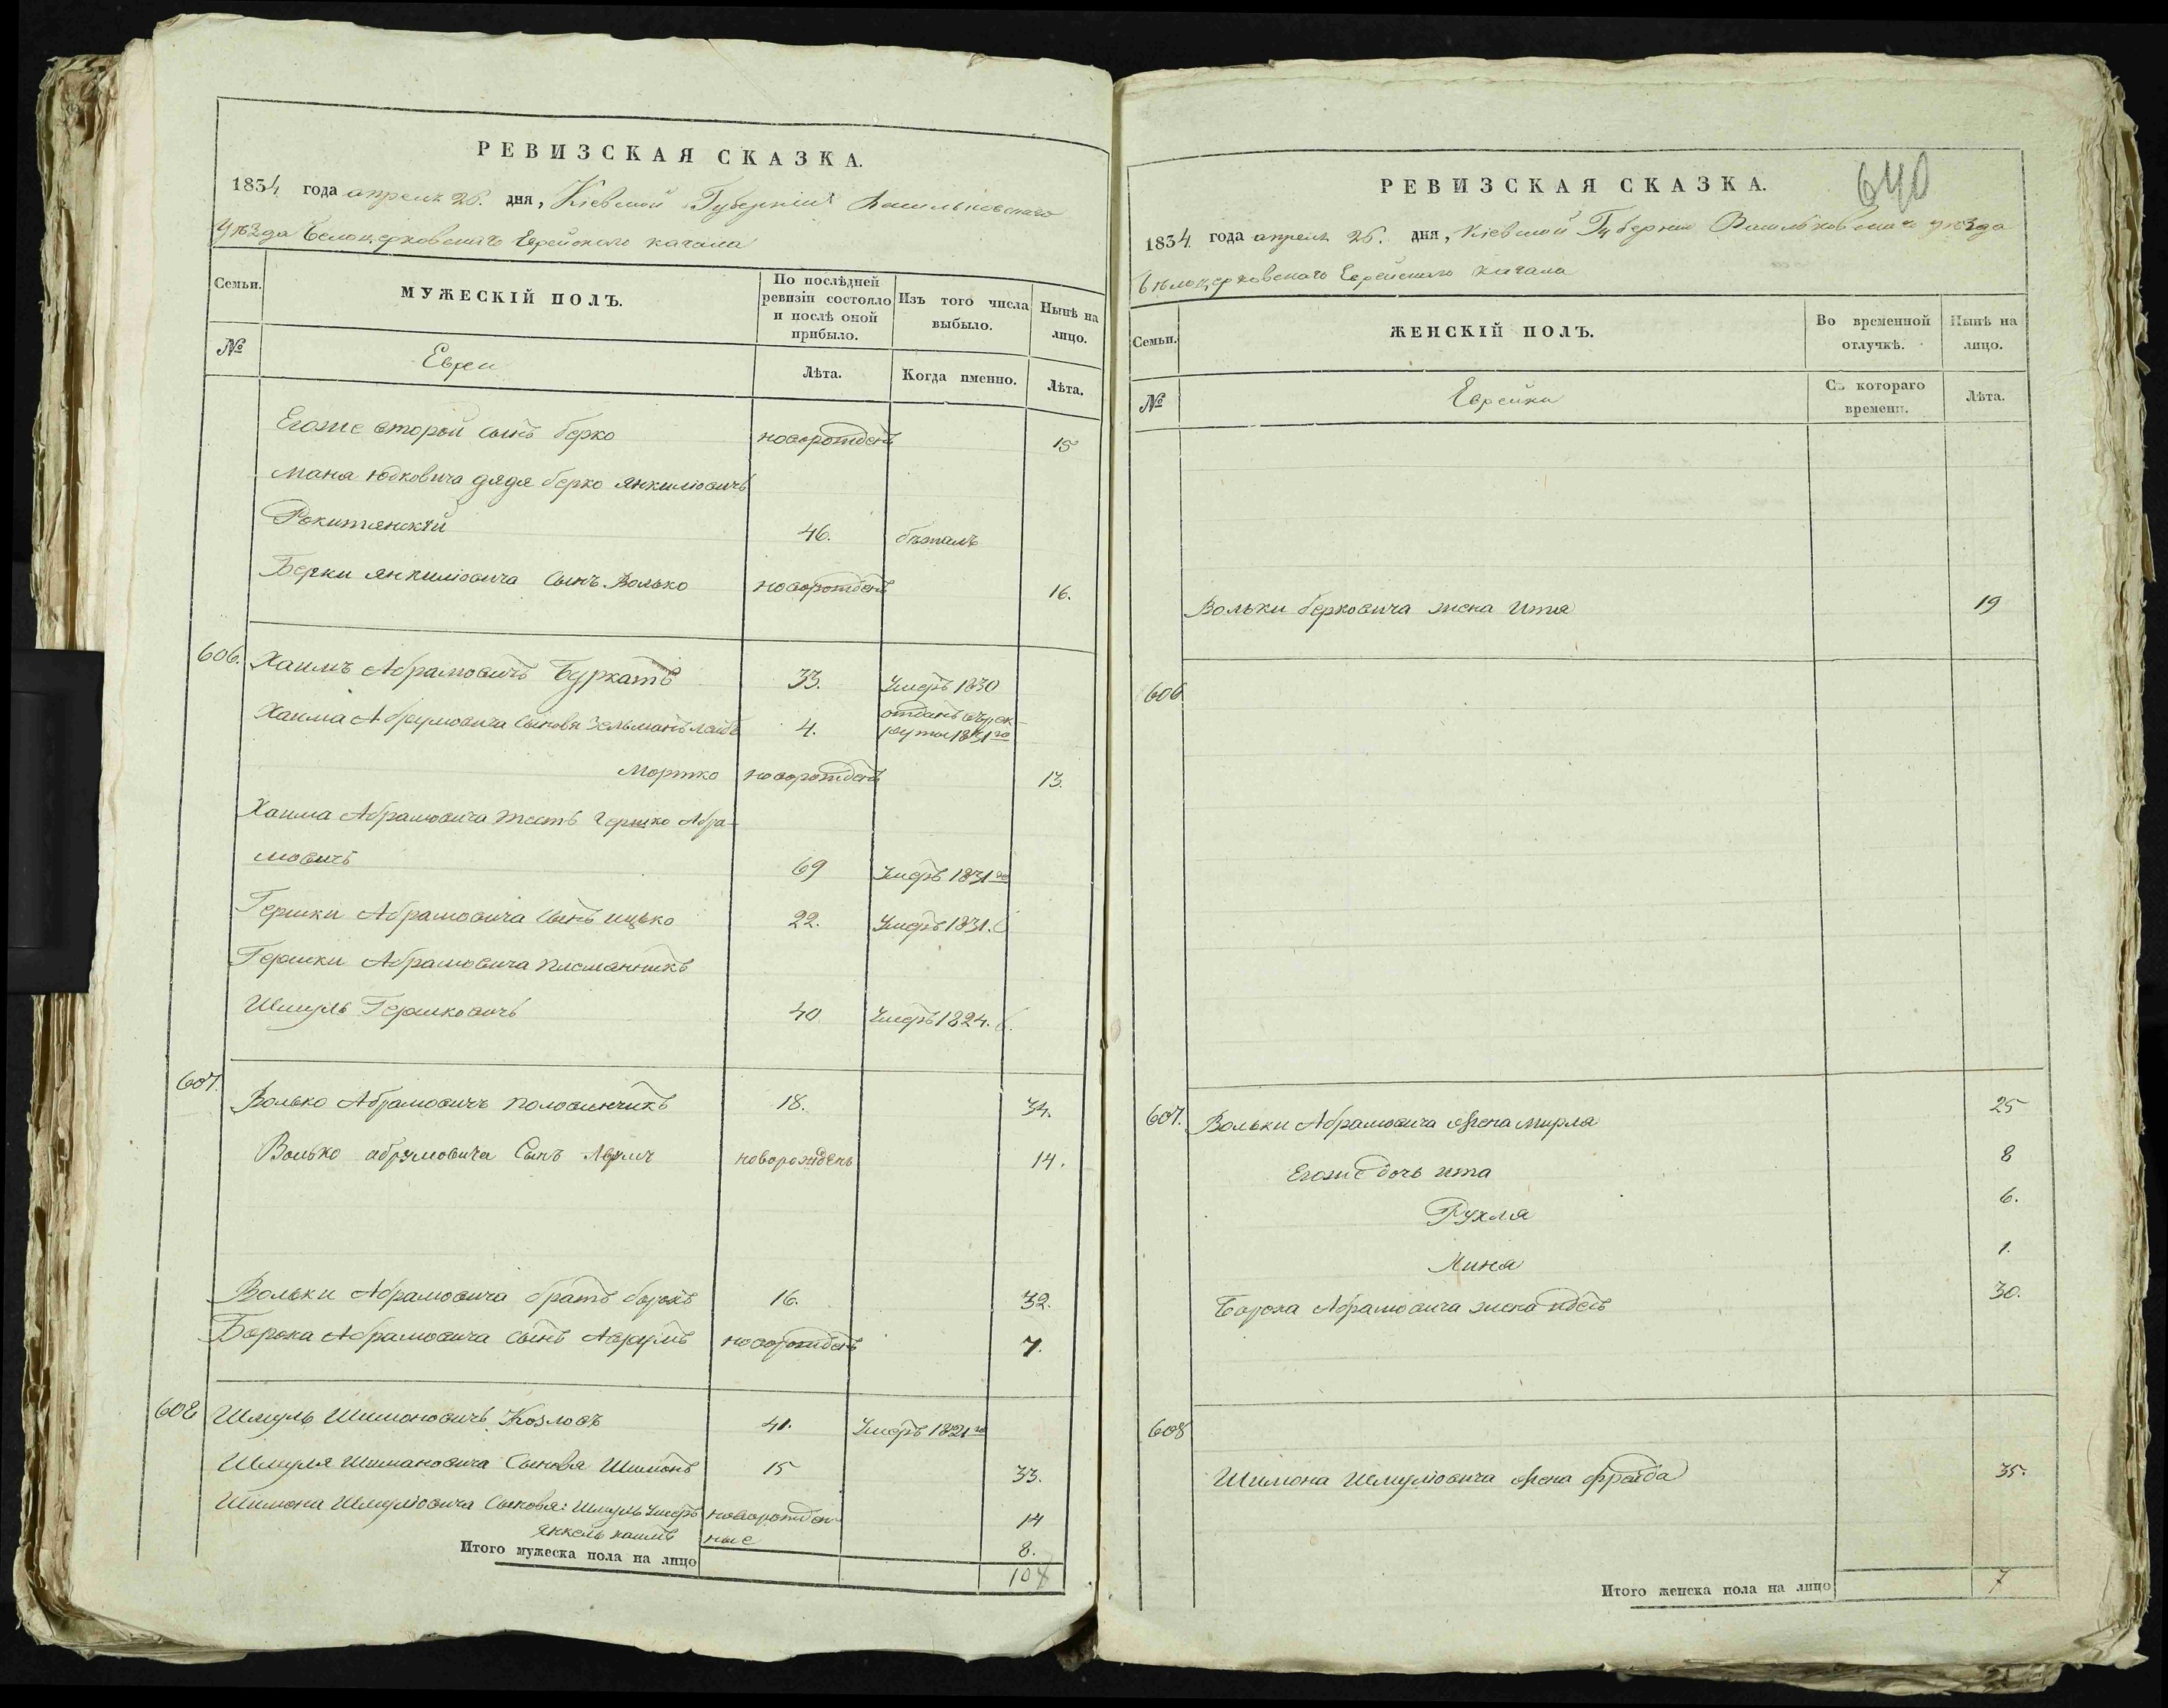 РЕВИЗСКАЯ СКАЗКА.
1834 года апреля 26. дня, Кіевской Губерніи Васильковскаго
уѣзда Белоцерковскаго Еврейскаго кагала
Семьи. МУЖЕСКІЙ ПОЛЪ. По послѣдней ревизіи состояло и послѣ оной прибыло. Изъ того числа выбыло. Нынѣ на лицо.
№ Евреи Лѣта. Когда именно. Лѣта.
Егоже вторый сынъ берко новорожденъ 15
Маня Юдковича дядя берко янкиліовичъ
Рокитянскій 46. бѣжалъ
Берки янкиліовича Сынъ Волько новорожденъ 16.
606. Хаимъ Абрамовичъ Буркатъ 33. Умеръ 1830
Хаима Абрумовича Сыновя Зельманъ лейбъ 4. отданъ въ рек-
руты 1831го
Моршко новорожденъ 13.
Хаима Абрамовича тесть Гершко Абра-
мовичъ 69 Умеръ 1831го
Гершки Абрамовича Сынъ ицько 22. Умеръ 1831.
Гершки Абрамовича писманникъ
Шмуль Гершковичъ 40 Умеръ 1824.
607. Волько Абрамовичъ половинчикъ 18. 34.
Волько абрумовича Сынъ новорожденъ 14.
Вольки Абрамовича братъ борохъ 16. 32.
Бороха Абрамовича Сынъ Аврумъ новорожденъ 7.
608 Шмуль Шимоновичъ Козловъ 41. Умеръ 1821го
Шмуля Шимановича Сыновя Шимонъ 15 33.
Шимона Шмуліовича Сыновя: Шмуль Умеръ новорожден- 14
янкель хаимъ ные 8.
Итого мужеска пола на лицо 10
РЕВИЗСКАЯ СКАЗКА.
640
1834 года апреля 26. дня, Кіевской Губерніи Васильковскаго уѣзда
Бѣлоцерковскаго Еврейскаго кагала
Семьи. ЖЕНСКІЙ ПОЛЪ. Во временной отлучкѣ. Нынѣ на лицо.
№ Еврейки Съ котораго времени. Лѣта.
Вольки берковича жена Итя 19
606
607. Вольки Абрамовича жена мирля 25
Егоже дочь ита 8
Рухля 6.
1.
Бороха Абрамовича жена 30.
608
Шимона Шмуліовича жена фрейда 35.
Итого женска пола на лицо 7